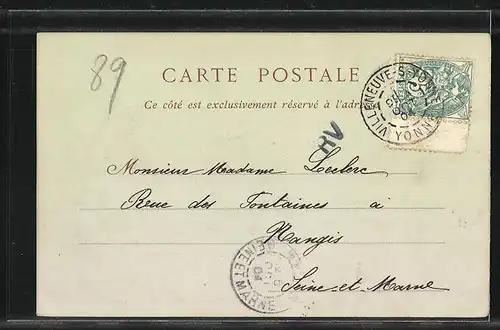 89
CARTE POSTALE
Ce côté est exclusivement réservé à l'adre
VILLENEUVE-S-YONNE
YONNE
5
RV
Monsieur Madame Leclerc
Rue des Fontaines à
Nangis
Seine et Marne
SEINE ET MARNE
04